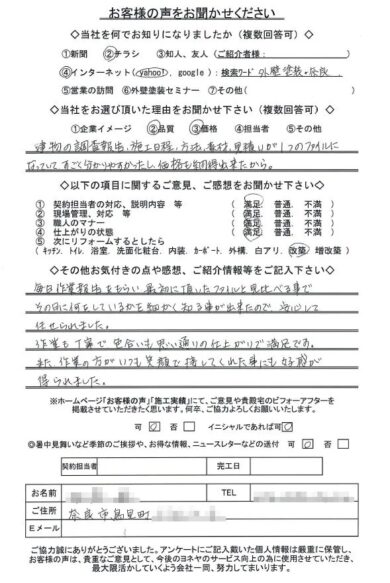 お客様の声をお聞かせください
◇当社を何でお知りになりましたか(複数回答可)
①新聞 ②チラシ ③知人、友人(ご紹介者様: )
④インターネット(yahoo!, google):検索ワード 外壁塗装 奈良
⑤営業の訪問 ⑥外壁塗装セミナー ⑦その他( )
◇当社をお選び頂いた理由をお聞かせ下さい(複数回答可)
①企業イメージ ②品質 ③価格 ④担当者 ⑤その他
建物の調査報告、施工日程、方法、素材、見積りが1つのファイルに
なっていてすごく分かりやすかったし、価格も納得出来たから。
◇以下の項目に関するご意見、ご感想をお聞かせ下さい◇
① 契約担当者の対応、説明内容 等 ( 満足. 普通. 不満 )
② 現場管理、対応 等 ( 満足. 普通. 不満 )
③ 職人のマナー ( 満足. 普通. 不満 )
④ 仕上がりの状態 ( 満足. 普通. 不満 )
⑤ 次にリフォームするとしたら
(キッチン. トイレ. 浴室. 洗面化粧台. 内装. カーポート. 外構. 白アリ. 改築. 増改築)
◇その他お気付きの点や感想、ご紹介情報等をご記入下さい◇
毎日作業報告をもらい、最初に頂いたファイルと見比べる事で
その日に何をしているかを細かく知る事が出来たので、安心して
任せられました。
作業も丁寧で色合いも思い通りの仕上がりで満足です。
また、作業の方がいつも笑顔で接してくれた事にも好感が
得られました。
※ホームページ「お客様の声」「施工実績」にて、ご意見や貴殿宅のビフォーアフターを
掲載させていただきたく思います。何卒、ご協力よろしくお願いいたします。
可 否 イニシャルであれば可
◎暑中見舞いなど季節のご挨拶や、お得な情報、ニュースレターなどの送付 可 否
契約担当者 完工日
お名前 TEL
ご住所 奈良市
Eメール
ご協力誠にありがとうございました。アンケートにご記入戴いた個人情報は厳重に保管し、
お客様の声は、貴重なご意見として、今後のヨネヤのサービス向上の為に使用させていただき、
最大限活かしていくよう会社一同、努力してまいります。